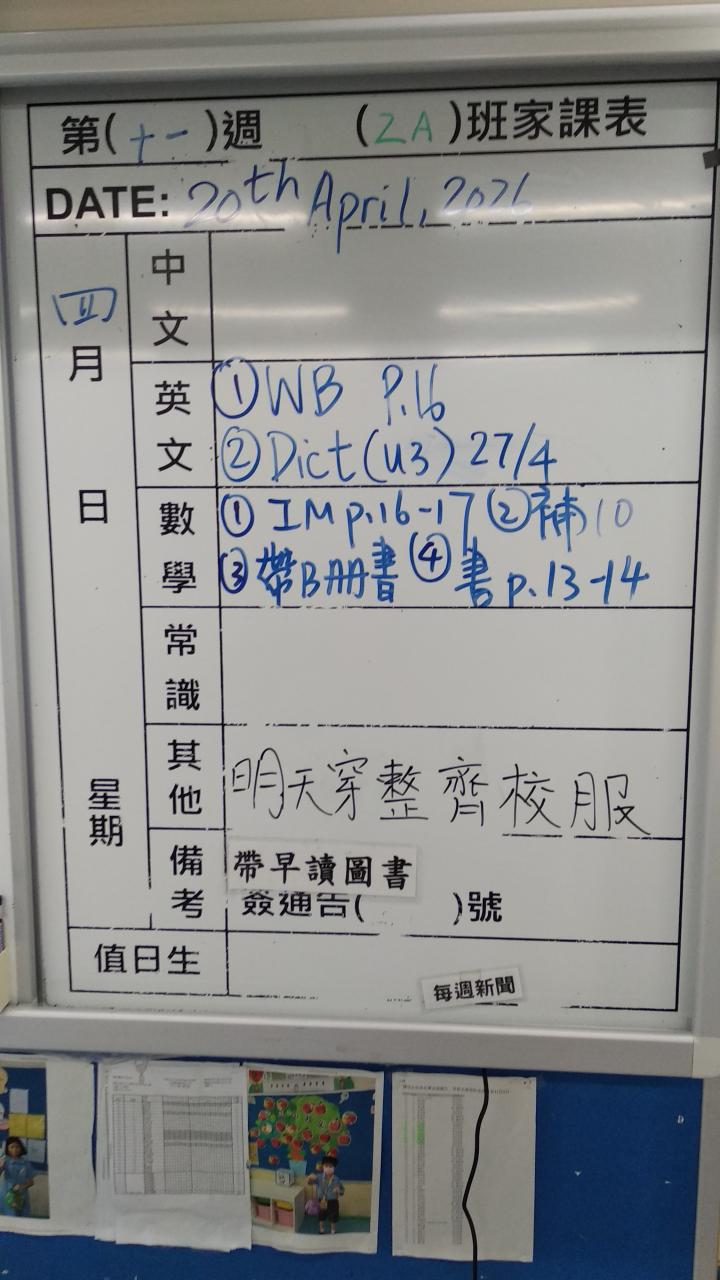 第(十一)週 (2A)班家課表
DATE: 20th April, 2026
四月 日 星期
中文
英文 ①WB P.16
②Dict(u3) 27/4
數學 ① IM p.16-17 ②補10
③帶B册書 ④書 p.13-14
常識
其他 明天穿整齊校服
備考 帶早讀圖書
簽通告( )號
值日生
每週新聞